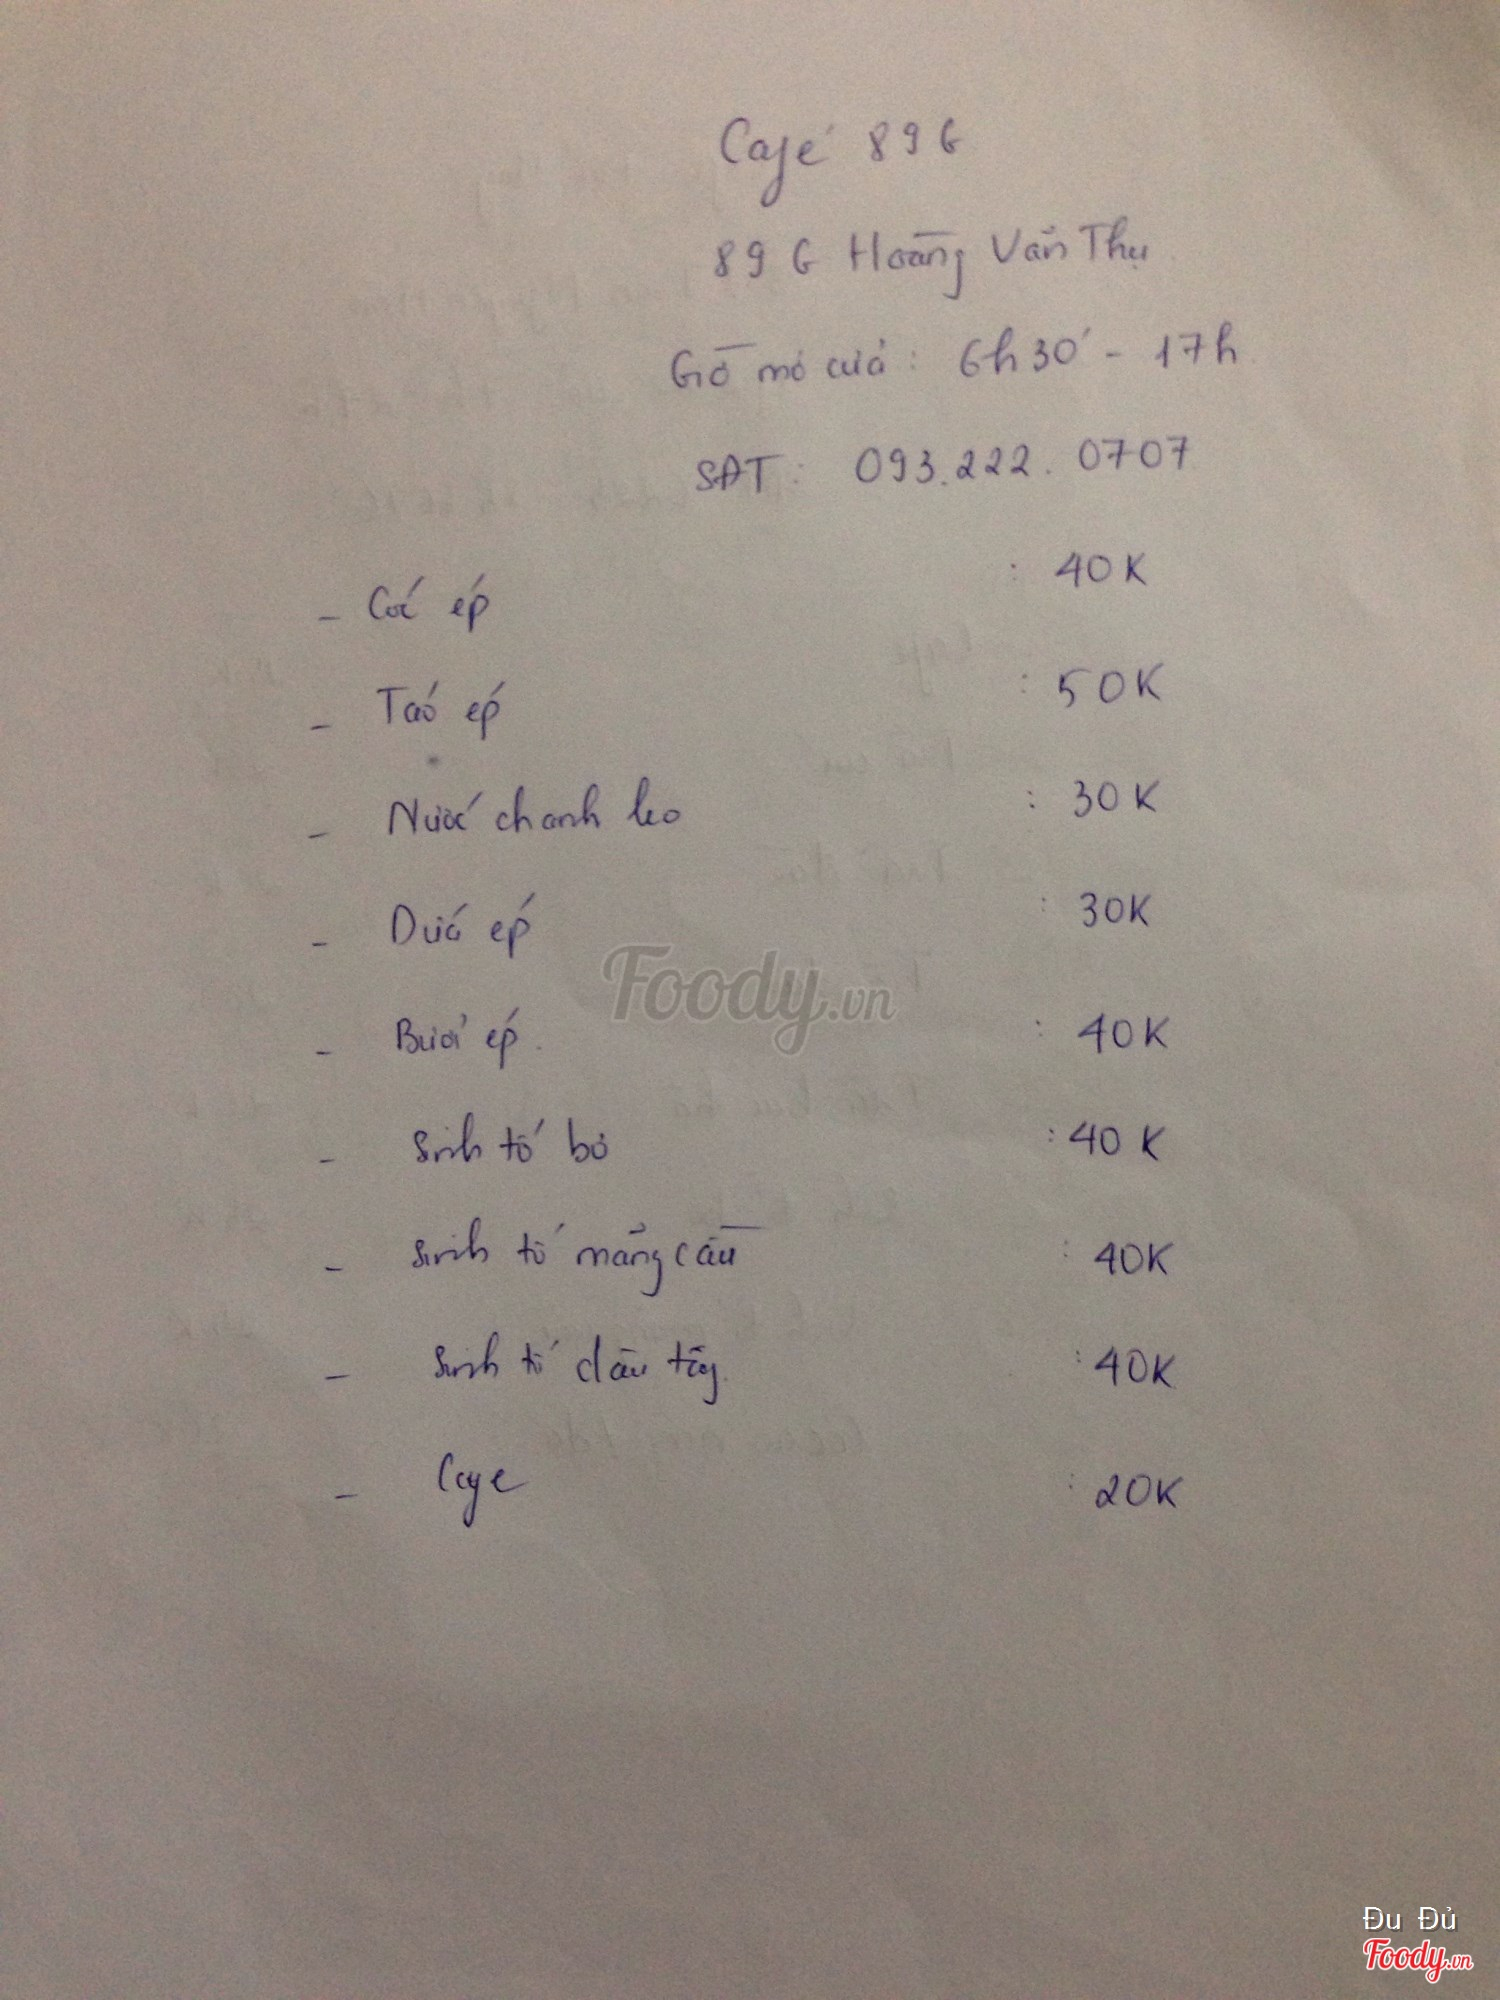 Café 89G
89G Hoàng Văn Thụ
Giờ mở cửa: 6h30' - 17h
SĐT: 093.222.0707
- Cóc ép : 40K
- Táo ép : 50K
- Nước chanh leo : 30K
- Dứa ép : 30K
- Bưởi ép. : 40K
- Sinh tố bơ : 40K
- Sinh tố mãng cầu : 40K
- Sinh tố dâu tây. : 40K
- Cafe : 20K
Foody.vn
Đu Đủ
Foody.vn